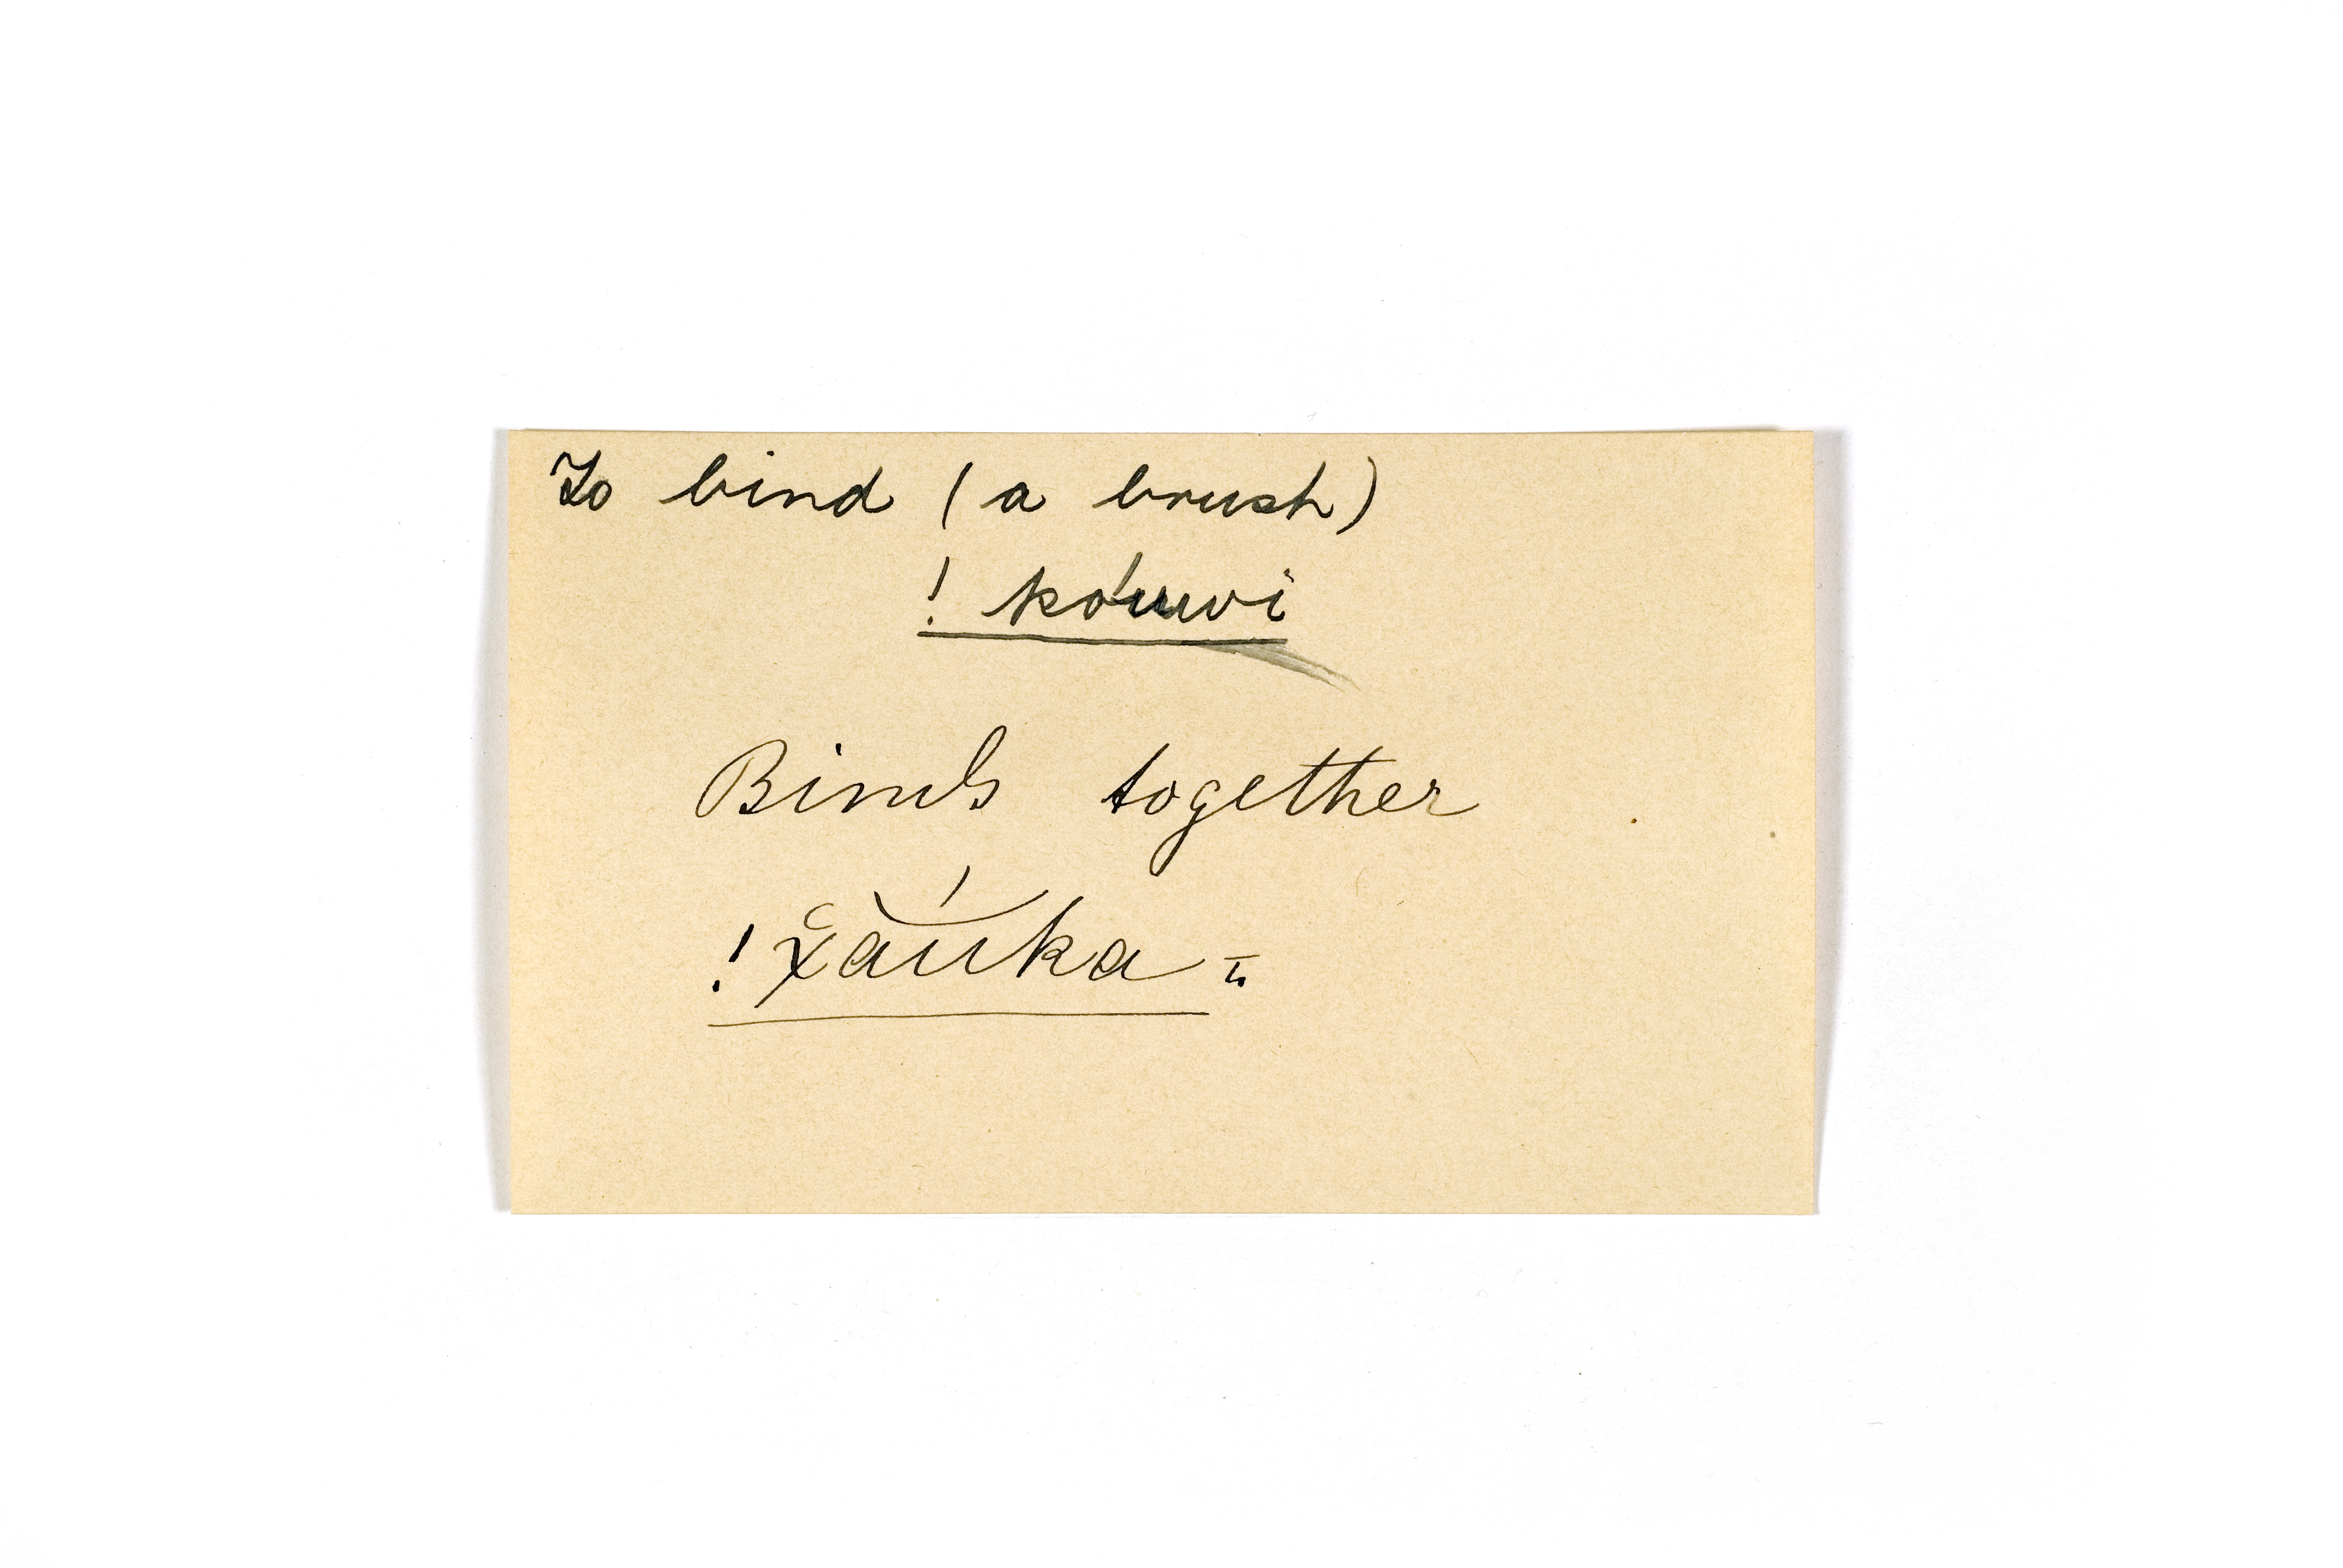 To bind (a brush)
! kóuwi
Binds together
! χ̆ăŭ́ka =